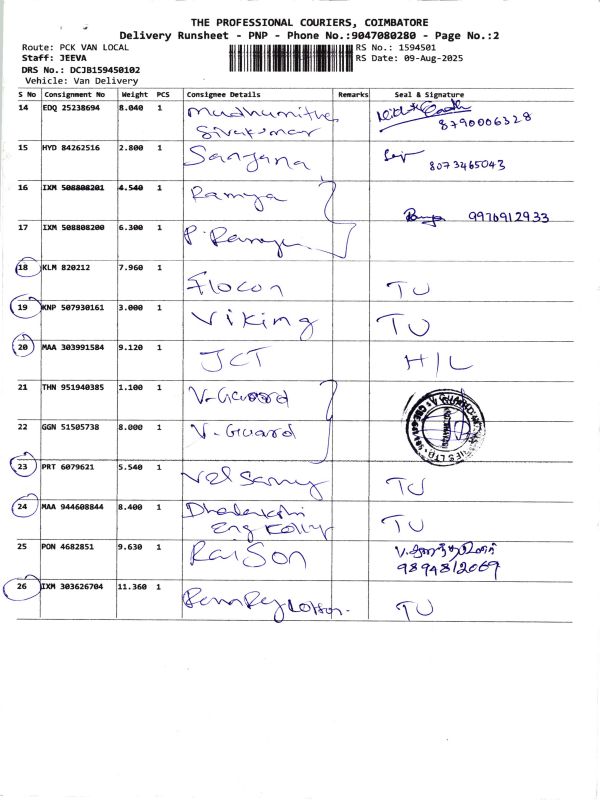 THE PROFESSIONAL COURIERS, COIMBATORE
Delivery Runsheet - PNP - Phone No.:9047080280 - Page No.:2
Route: PCK VAN LOCAL RS No.: 1594501
Staff: JEEVA RS Date: 09-Aug-2025
DRS No.: DCJB159450102
Vehicle: Van Delivery
S No Consignment No Weight PCS Consignee Details Remarks Seal & Signature
14 EDQ 25238694 8.040 1 Madhumitha
Sivakumar 8790006328
15 HYD 84262516 2.800 1 Sanjana 8073465043
16 IXM 508808201 4.540 1 Ramya
9976912933
17 IXM 508808200 6.300 1 P. Ramya
18 KLM 820212 7.960 1 Flocon TU
19 KNP 507930161 3.000 1 Viking TU
20 MAA 303991584 9.120 1 JCT H/L
21 THN 951940385 1.100 1 V-Guard
22 GGN 51505738 8.000 1 V-Guard
23 PRT 6079621 5.540 1 Vel Samy TU
24 MAA 944608844 8.400 1 TU
25 PON 4682851 9.630 1 RaiSon
9894812069
26 IXM 303626704 11.360 1 TU